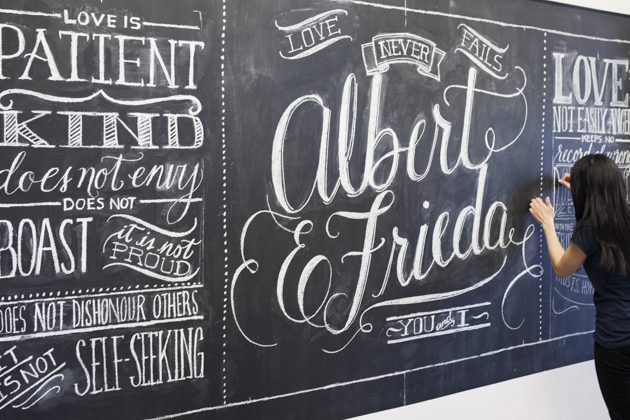 LOVE IS
PATIENT
KIND
does not envy
DOES NOT
BOAST
it is not
PROUD
DOES NOT DISHONOUR OTHERS
IT
IS NOT
SELF-SEEKING
LOVE
NEVER
FAILS
Albert
& Frieda
YOU and I
LOVE
NOT EASILY ANGE
KEEPS NO
record of wrong